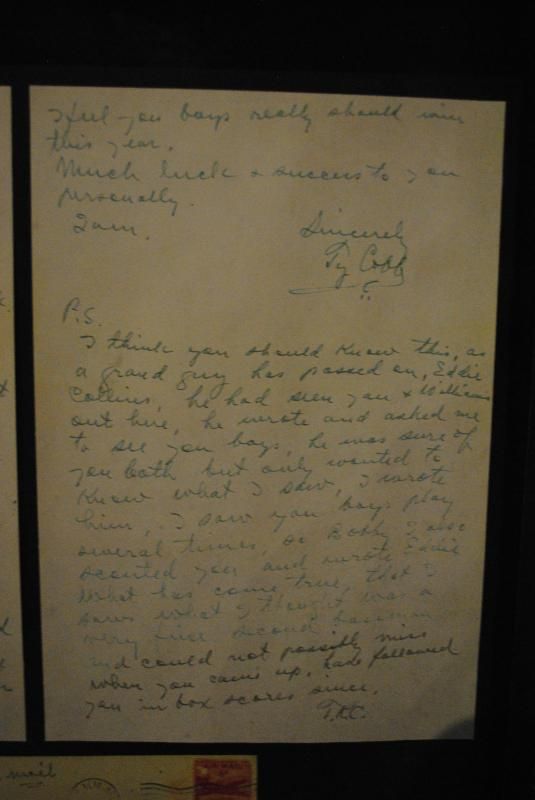 I feel you boys really should win
this year.
Much luck & success to you
personally.
I am,
Sincerely
Ty Cobb
P.S.
I think you should know this, as
a grand guy has passed on, Eddie
Collins, he had seen you & Williams
out here, he wrote and asked me
to see you boys, he was sure of
you both but only wanted to
know what I saw, I wrote
him, I saw you boys play
several times, so Bobby I also
scouted you and wrote Eddie
what has come true, that I
saw what I thought was a
very fine second baseman
and could not possibly miss
when you came up, have followed
you in box scores since.
T.R.C.
mail
AIR MAIL